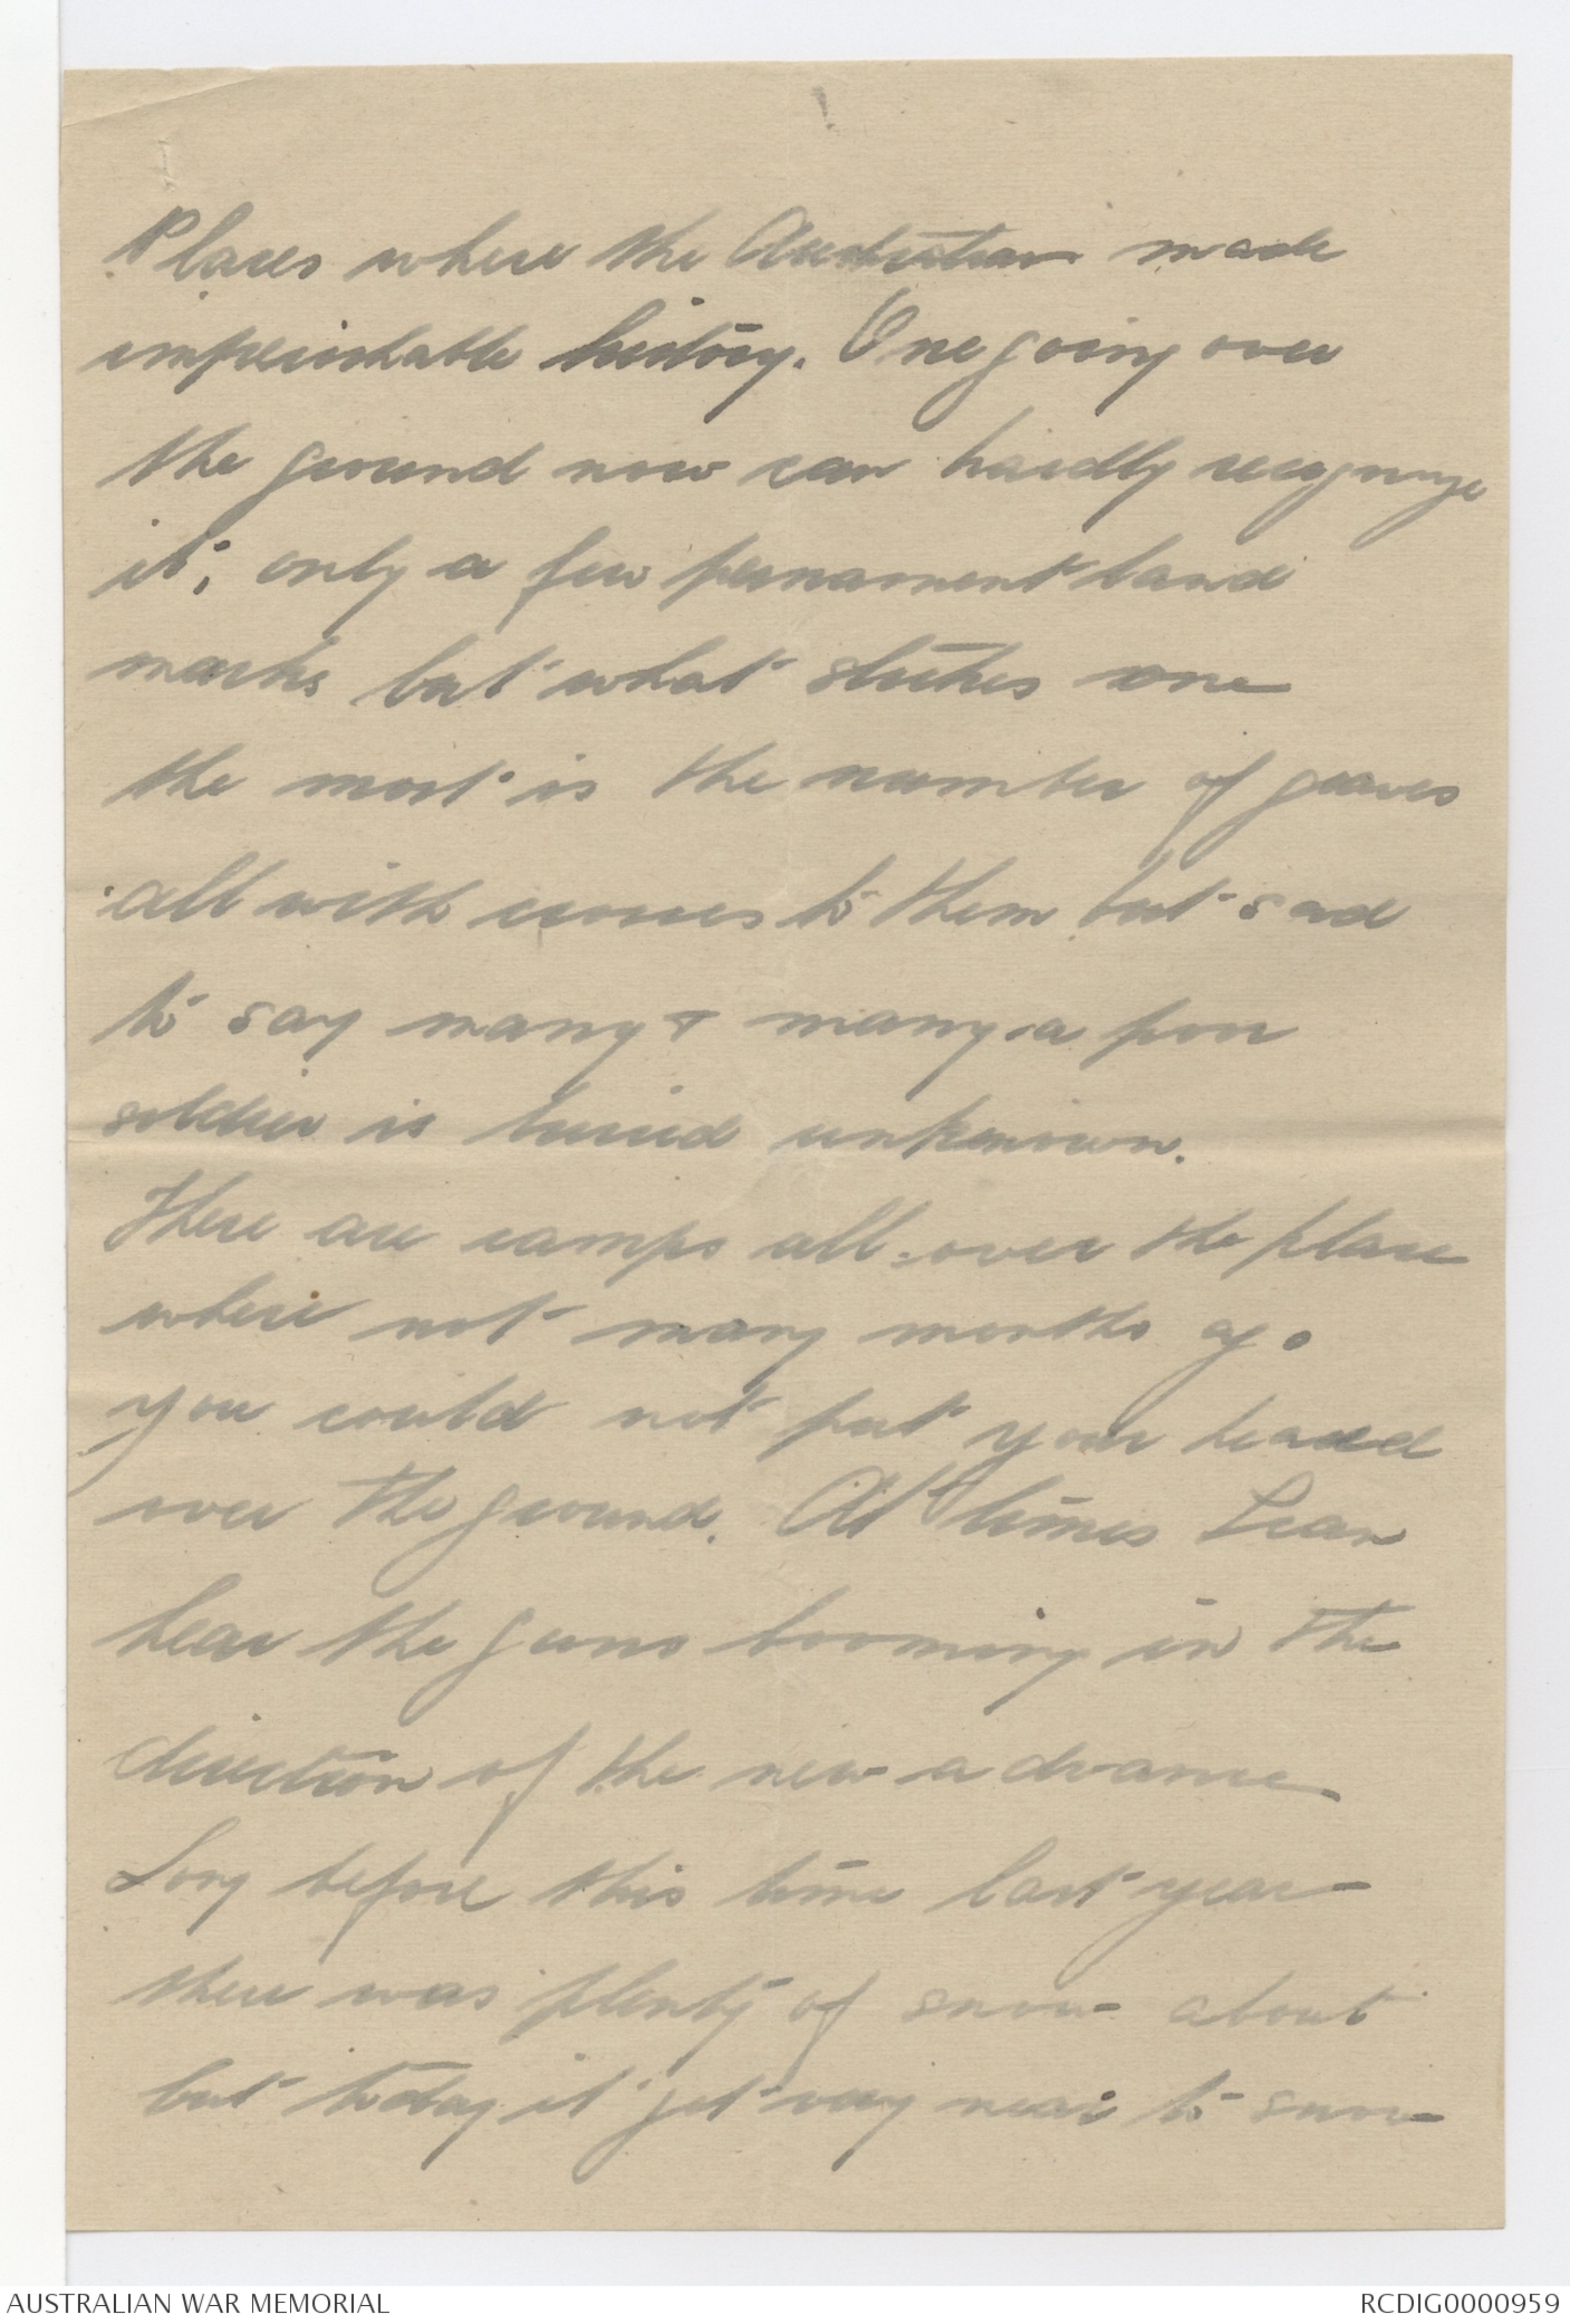 Places where the Australian made
imperishable history. One going over
the ground now can hardly recognize
it; only a few permanent land
marks but what strikes one
the most is the number of graves
all with crosses to them but sad
to say many & many a poor
soldier is buried unknown.
There are camps all over the place
where not many months ago
you could not put your head
over the ground. At times I can
hear the guns booming in the
direction of the new advance
Long before this time last year
there was plenty of snow about
but today it got very near to snow
AUSTRALIAN WAR MEMORIAL
RCDIG0000959